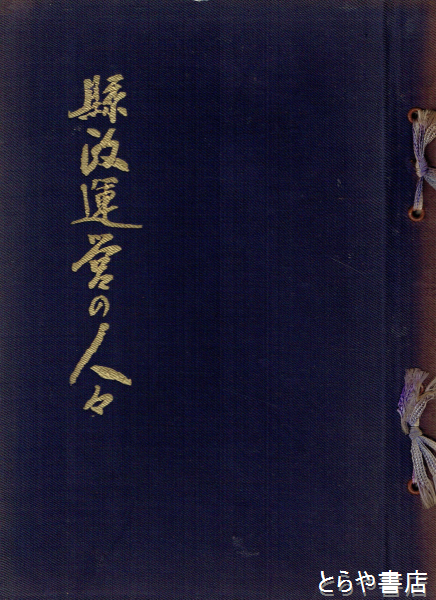 縣政運営の人々
とらや書店